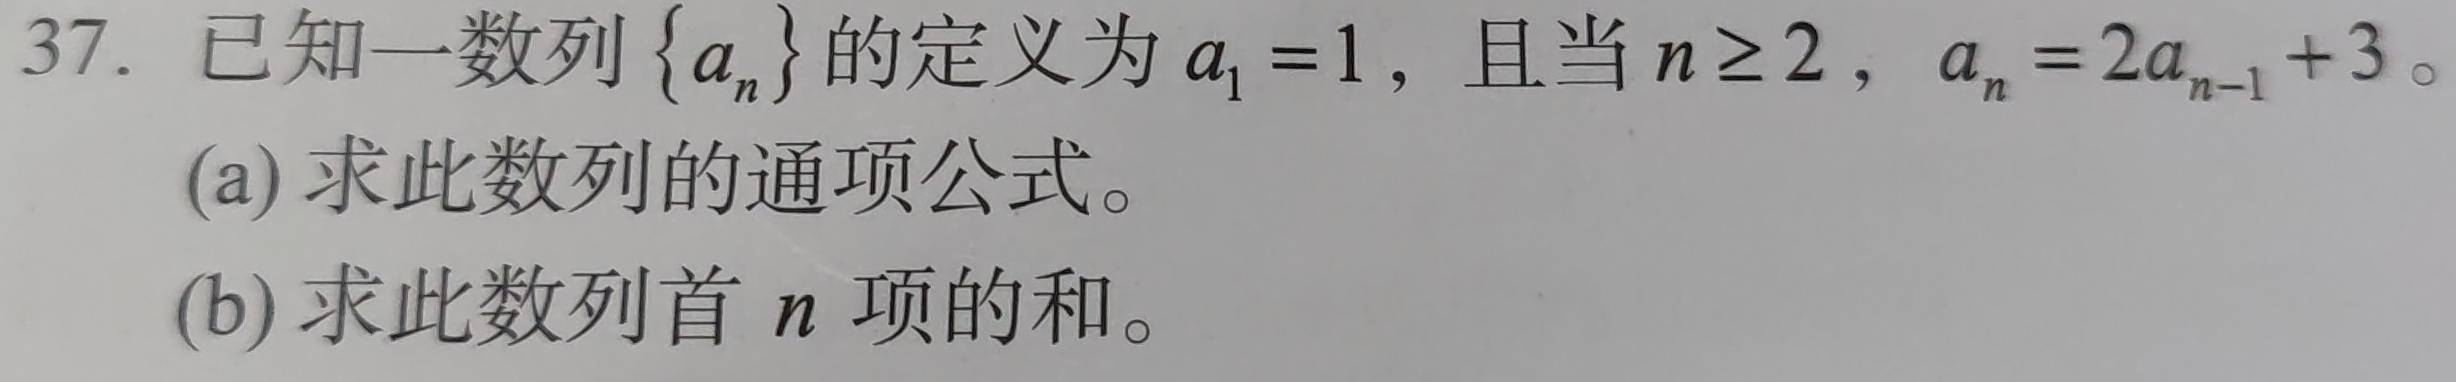 37. 已知一数列 {aₙ} 的定义为 a₁ = 1，且当 n ≥ 2，aₙ = 2aₙ₋₁ + 3。
(a) 求此数列的通项公式。
(b) 求此数列首 n 项的和。